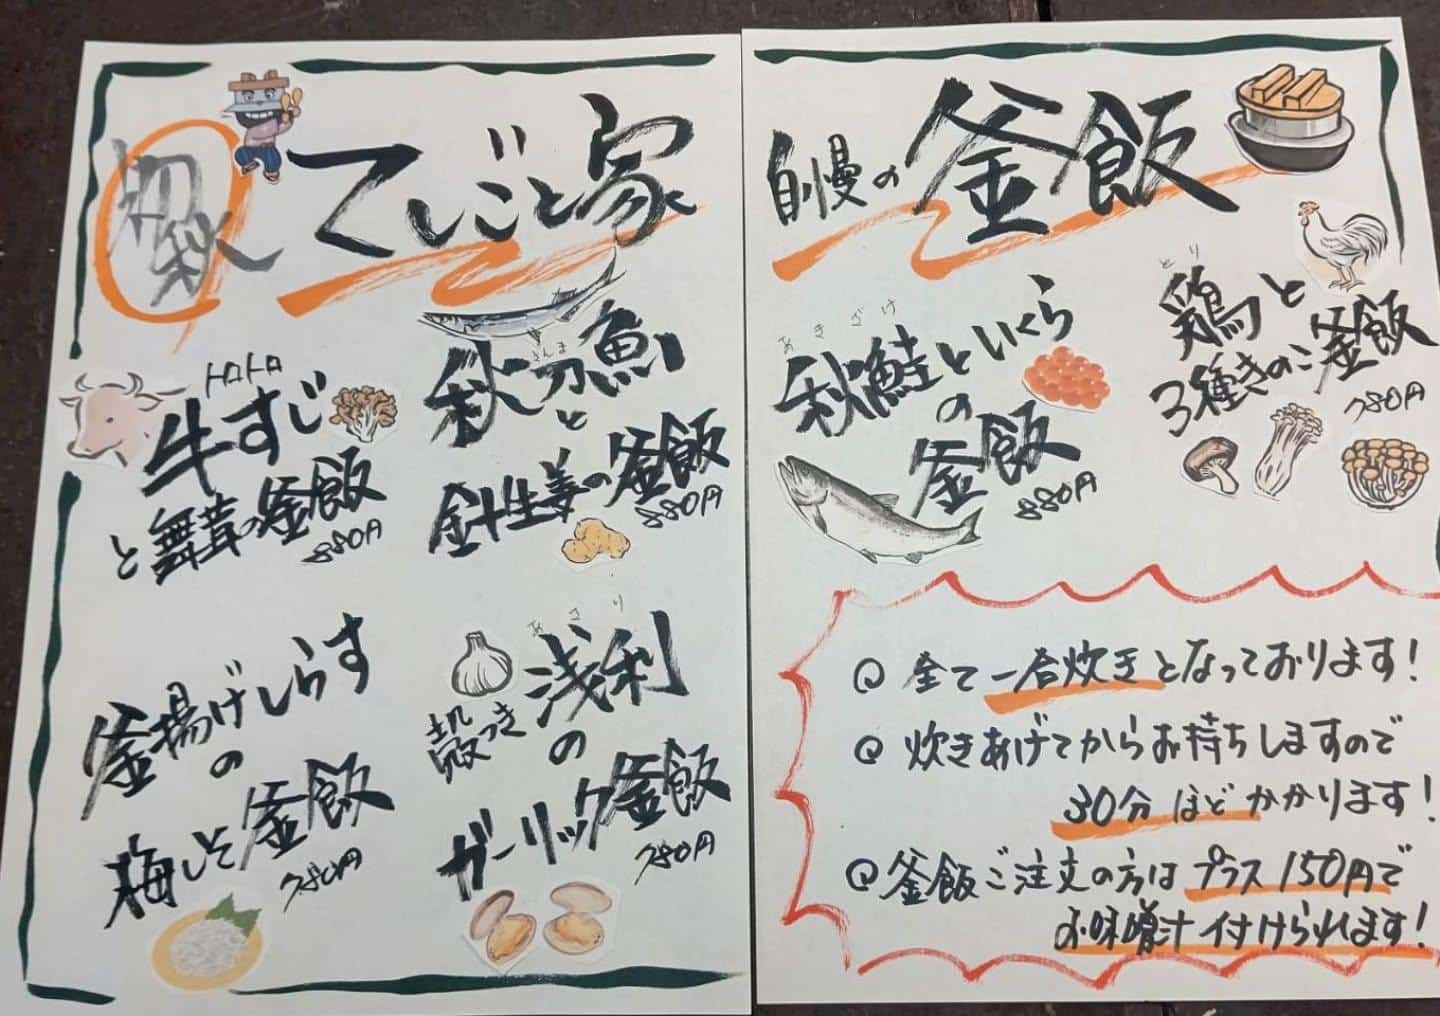 初秋
てしごと家
トロトロ
牛すじ
と舞茸の釜飯
880円
さんま
秋刀魚
と
針生姜の釜飯
880円
釜揚げしらす
の
梅しそ釜飯
780円
あさり
殻つき浅利
の
ガーリック釜飯
780円
自慢の釜飯
あきざけ
秋鮭といくら
の
釜飯
880円
とり
鶏と
3種きのこ釜飯
780円
全て一合炊きとなっております!
炊きあげてからお持ちしますので
30分ほどかかります!
釜飯ご注文の方はプラス150円で
お味噌汁付けられます!